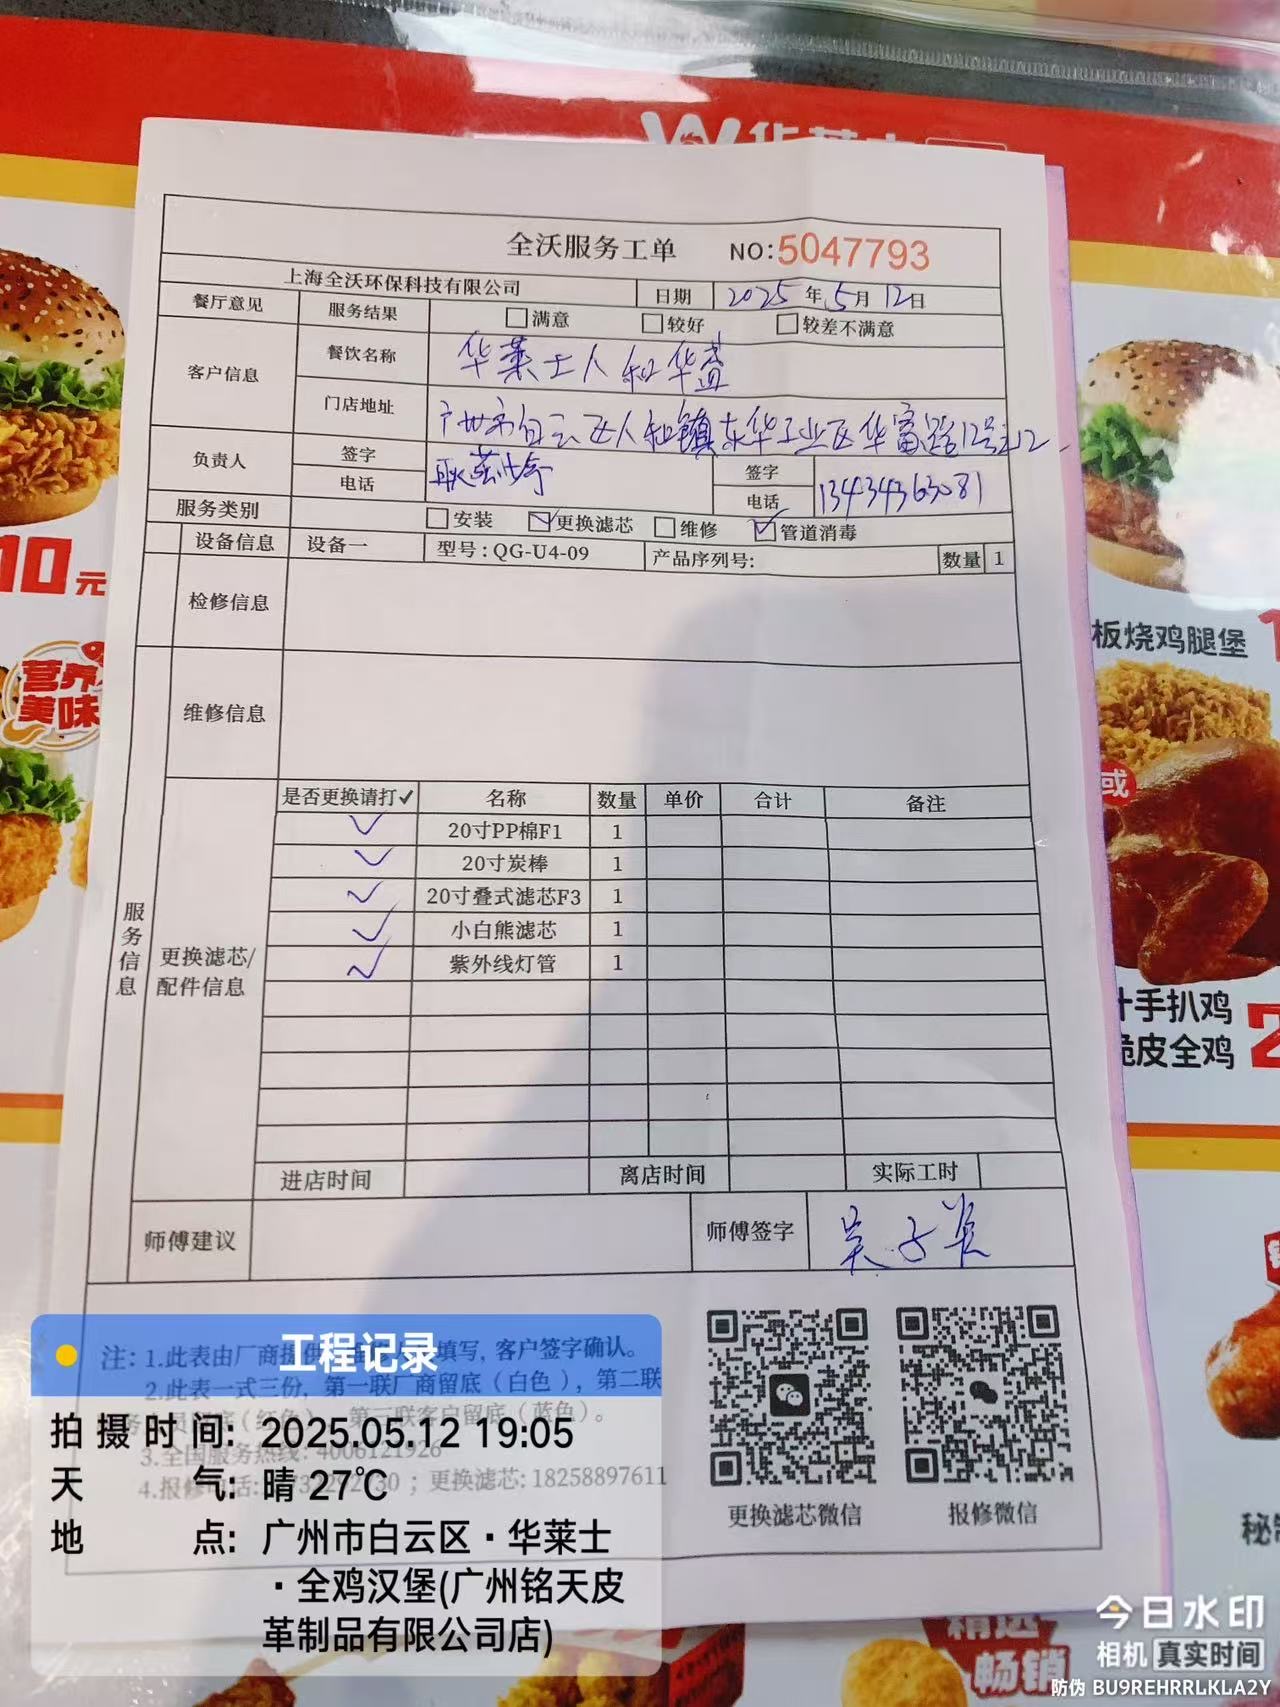 全沃服务工单 NO:5047793
上海全沃环保科技有限公司 日期 2025年5月12日
餐厅意见 服务结果 满意 较好 较差不满意
客户信息 餐饮名称 华莱士人和华盛
门店地址 广州市白云区人和镇东华工业区华富路12号之12
负责人 签字 签字
电话 电话 13434363081
服务类别 安装 更换滤芯 维修 管道消毒
设备信息 设备一 型号:QG-U4-09 产品序列号: 数量 1
检修信息
维修信息
服务信息
更换滤芯/配件信息
是否更换请打✓ 名称 数量 单价 合计 备注
✓ 20寸PP棉F1 1
✓ 20寸炭棒 1
✓ 20寸叠式滤芯F3 1
✓ 小白熊滤芯 1
✓ 紫外线灯管 1
进店时间 离店时间 实际工时
师傅建议 师傅签字
注: 1.此表由厂商提供 填写, 客户签字确认。
2.此表一式三份, 第一联厂商留底(白色), 第二联
员留底(红色), 第三联客户留底(蓝色)。
3.全国服务热线: 4006121926
4.报修电话: ; 更换滤芯: 18258897611
更换滤芯微信 报修微信
工程记录
拍摄时间: 2025.05.12 19:05
天气: 晴 27℃
地点: 广州市白云区·华莱士
·全鸡汉堡(广州铭天皮
革制品有限公司店)
今日水印
相机 真实时间
防伪 BU9REHRRLKLA2Y
华莱士
10元
营养
美味
板烧鸡腿堡
或
手扒鸡
脆皮全鸡
2
精选
畅销
秘制